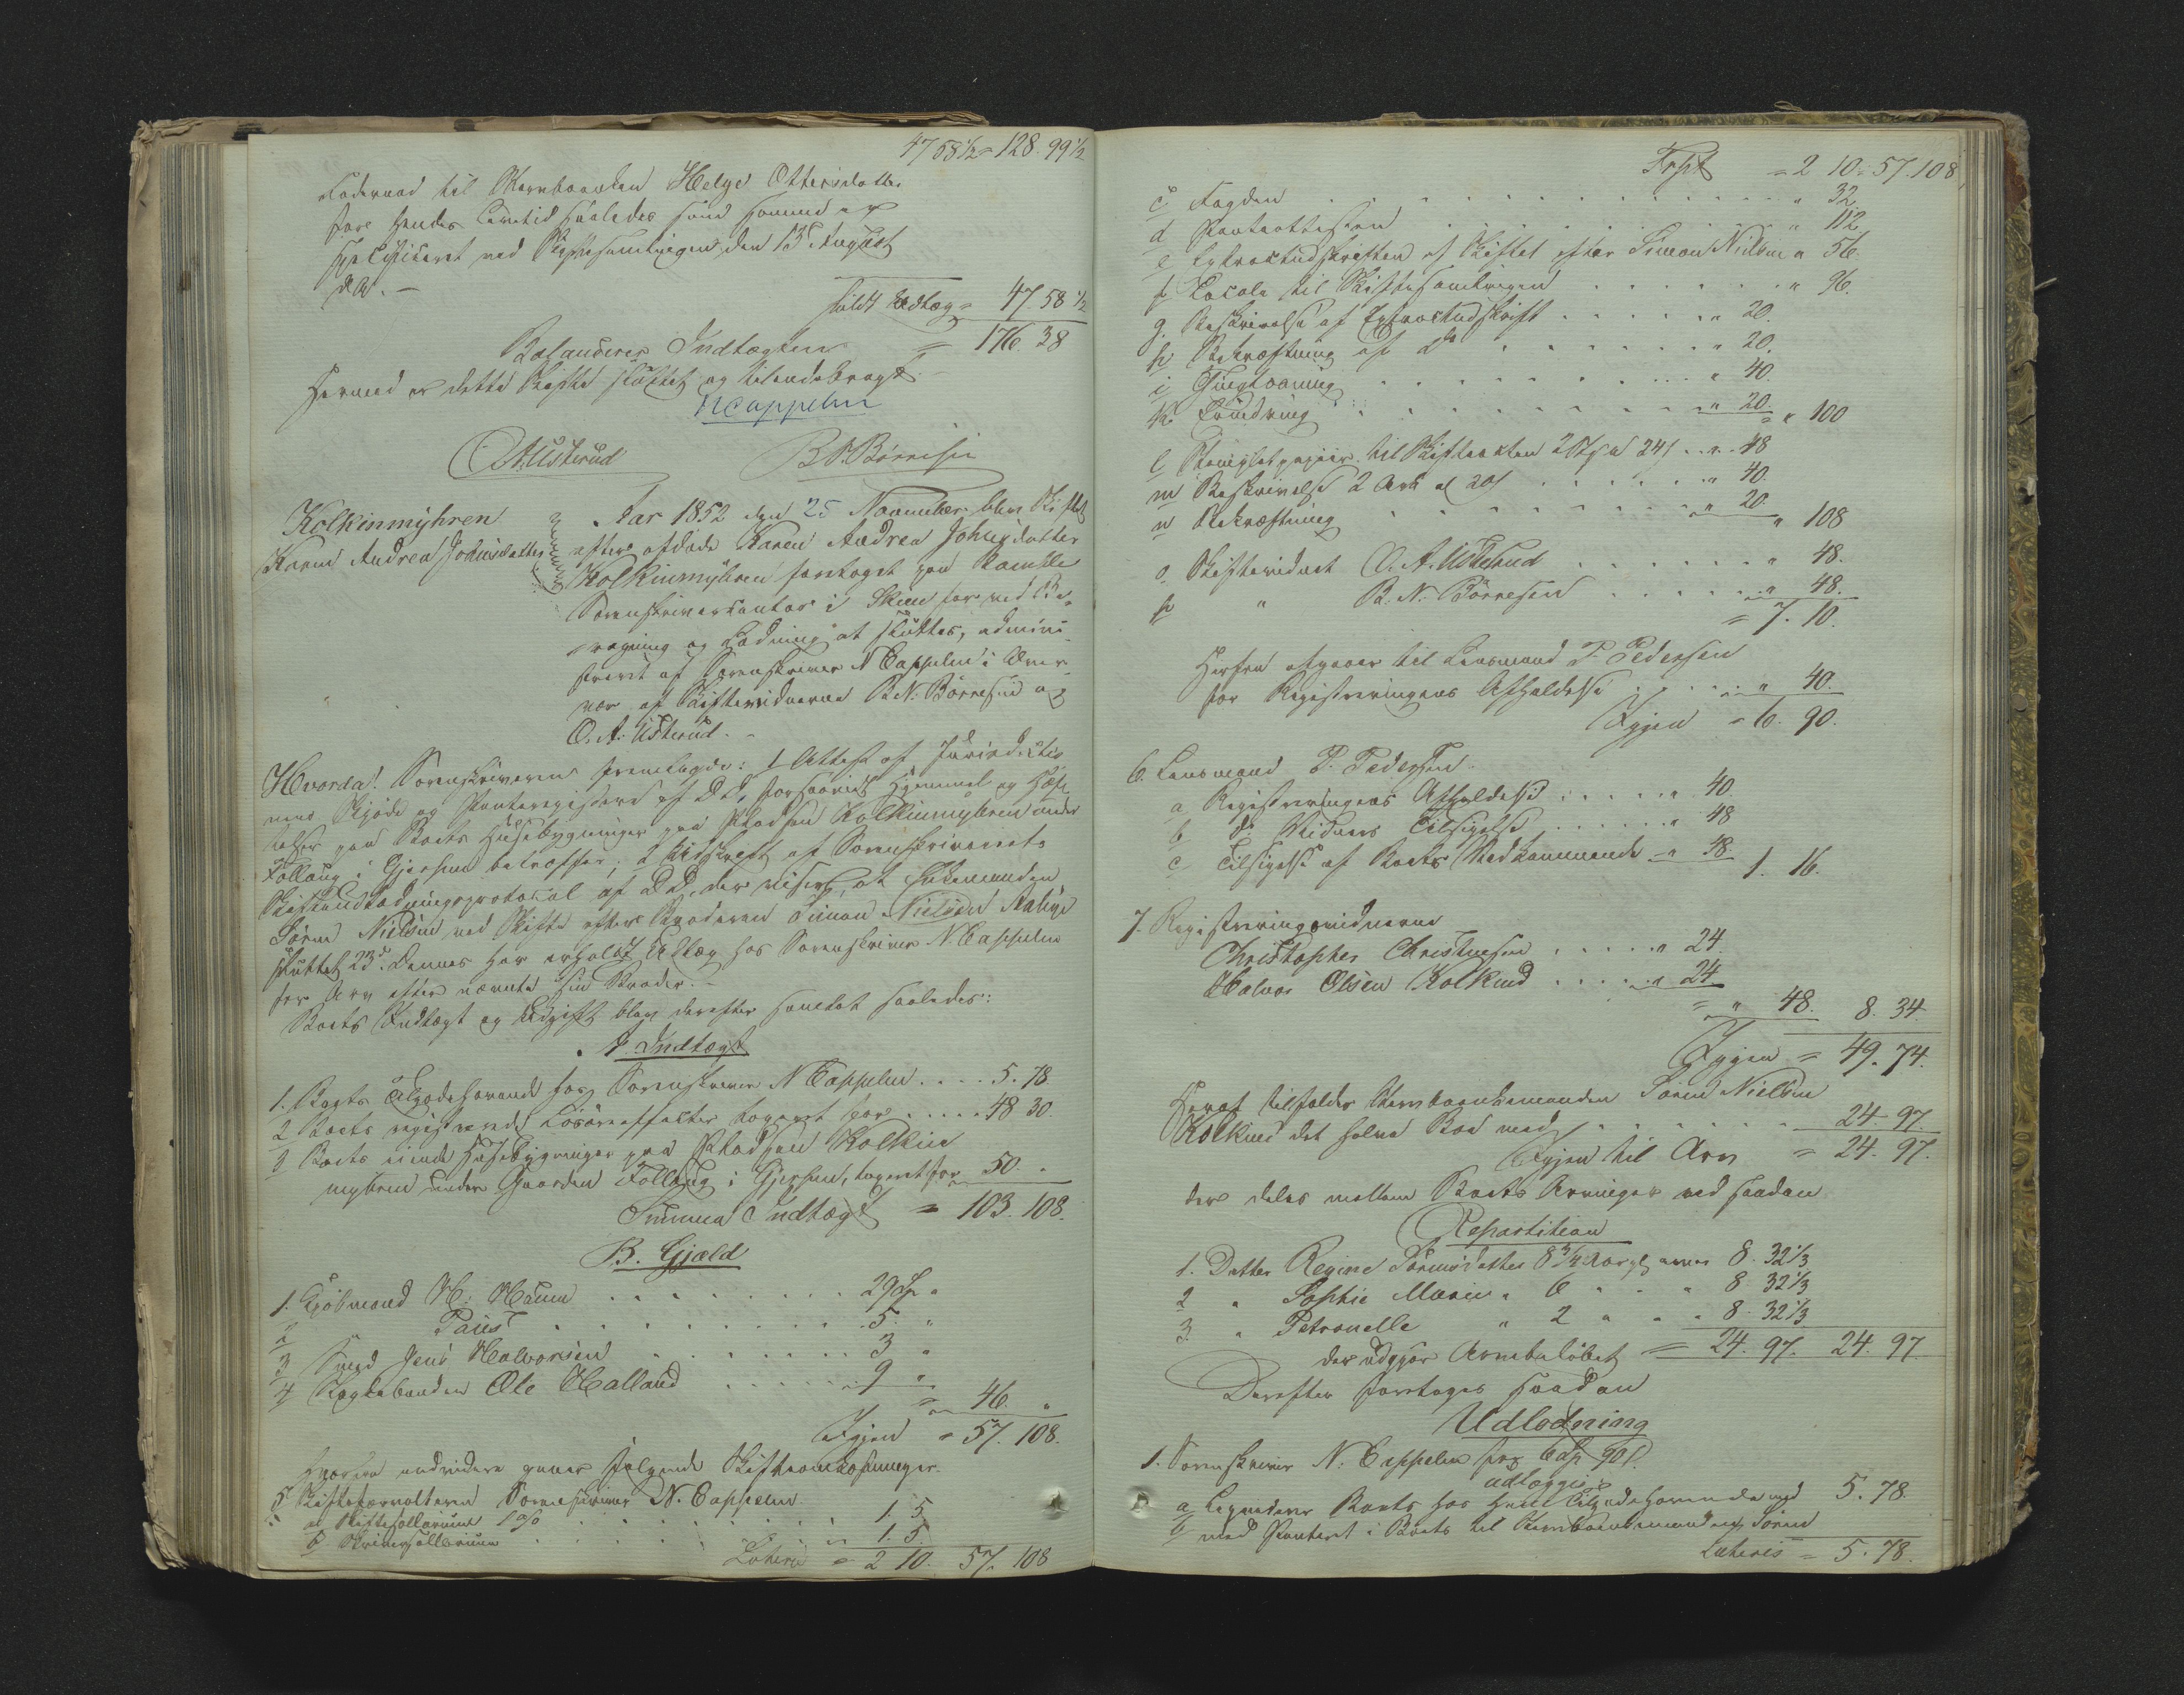 47 58½ = 128. 99½
Føderaad til Sterboenken Helge Ottersdatter
for hendes Levetid saaledes som samme er
specificeret ved Skiftesamlingen den 13de August
d A. —
fuldt Udlæg = 47. 58½
Balancerer Indtægten = 176. 38
Hermed er dette Skifte sluttet og tilendebragt. —
NCappelen
O A Usterud B N. Børresen
Kolkinmÿhren
Karen Andrea Johnsdatter
Aar 1852 den 25 November blev Skiftet
efter afdøde Karen Andrea Johnsdatter
Kolkinmÿhren foretaget paa Bamble
Sorenskrivercontor i Skien for ved Be-
regning og Lodning at sluttes, admini-
streret af Sorenskriver N Cappelen i Overvær
af Skiftevidnerne B N. Børresen og
O. A. Usterud. —
Hvorda! Sorenskriveren fremlagde: 1 Attest af Jurisdictio
nens Skjøde og Panteregistere af D D, forsaavidt Hjemmel og Hæf-
telser paa Boets Huusebygninger paa Pladsen Kolkinmÿhren under
Follaug i Gjerpen betræffer; 2 Udskrift af Sorenskriveriets
Skifteudlodningsprotocol af D D, der viser, at Enkemanden
Søren Nielsen ved Skifte efter Broderen Simon Nielsen
sluttet 23de Dennes har erholdt Udlæg hos Sorenskriver N. Cappelen
for Arv efter nævnte sin Broder. —
Boets Indtægt og Udgift blev derefter samlet saaledes:
A. Indtægt
1. Boets Tilgodehavende hos Sorenskriver N Cappelen . . . . 5. 78
2 Boets registrerede Løsøreeffecter taxeret for . . . . . 48 30.
3 Boets eiende Huusebygninger paa Pladsen Kolkin
myhren under Gaarden Follaug i Gjerpen, taxeret for 50. "
Summa Indtægt = 103. 108.
B. Gjæld
1. Kjøbmand H: Houen . . . . . . . . 29 Sp "
2 " Paus . . . . . . . . . 5. "
3 Smed Jens Halvorsen . . . . . . . 3 "
4 Ole Halland . . . . . . 9 "
= 46. "
Igjen = 57. 108.
Hvorfra endvidere gaaer følgende Skifteomkostninger.
5 Skifteforvalteren Sorenskriver N. Cappelen
a Skiftesallarium 1 % . . . . . . . . 1. 5
b Skriversallarium . . . . . . . . 1. 5.
Lateris = 2 10. 57. 108
Trspt = 2 10 = 57. 108
c Fogden . . . . . . . . . . . . " 32
d Panteattesten . . . . . . . . . . " 112
e Extractudskriften af Skiftet efter Simon Nielsen " 56.
f Locale til Skiftesamlingen . . . . . . " 96.
g. Beskrivelse af Extractudskrift . . . . . " 20.
h Bekræftning af do . . . . . . . " 20.
i Tinglæsning . . . . . . . . . . " 40.
k. . . . . . . . . . " 20.
= " 100
l Stemplet papir til Skifteacten 2 Ark a 24 s . . " 48
m Beskrivelse 2 Ark a 20 s . . . . . . " 40.
n Bekræftning . . . . . . . . . " 20
" 108
o Skiftevidnet O. A. Usterud . . . . . . . " 48.
p " B. N. Børresen . . . . . . " 48.
= 7. 10.
Herfra afgaaer til Lensmand P. Pedersen
for Registreringens Afholdelse . . . . . " 40.
Igjen = 6. 90.
6. Lensmand P. Pedersen.
a Registreringens Afholdelse . . . . . " 40
b do Vidners Tilsigelse . . . . . . " 48
c Tilsigelse af Boets Vedkommende " 48. 1. 16.
7. Registreringsvidnerne
Christopher Christensen . . . . . " 24
Halvor Olsen Kolkind . . . . . " 24.
= " 48. 8. 34
Igjen = 49. 74.
Heraf tilfalder Sterboenkemanden Søren Nielsen
Kolkind det halve Boe med . . . . . . 24. 97.
Igjen til Arv = 24. 97.
der deles mellem Boets Arvinger ved saadan
Repartition
1. Datter Regine Sørensdatter 8 ¾ Aar gl arver 8. 32⅓
2 " Sophie Marie " 6 " " " 8. 32⅓
3. " Petronelle " 2 " " " 8. 32⅓
der udgjør Arvebeløbet = 24. 97. 24. 97
Derefter foretages saadan
Udlodning
1. Sorenskriver N. Cappelen for 6 Sp 90 s.
udlægges
a Ligneder Boets hos ham Tilgodehavende med 5. 78.
b ved Panteret i Boets til Sterboenkemanden Søren
Lateris = 5. 78.